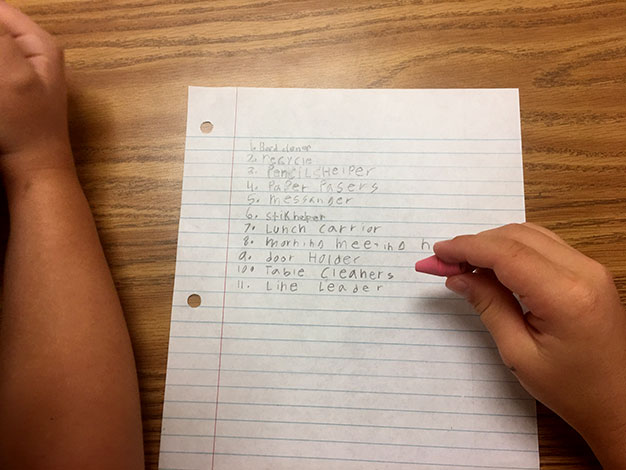 1. Bord clener
2. recycle
3. Pencil Helper
4. Paper Pasers
5. messanger
6. stikhelper
7. Lunch carrior
8. morning meeting h
9. door Holder
10. Table Cleaners
11. Line Leader